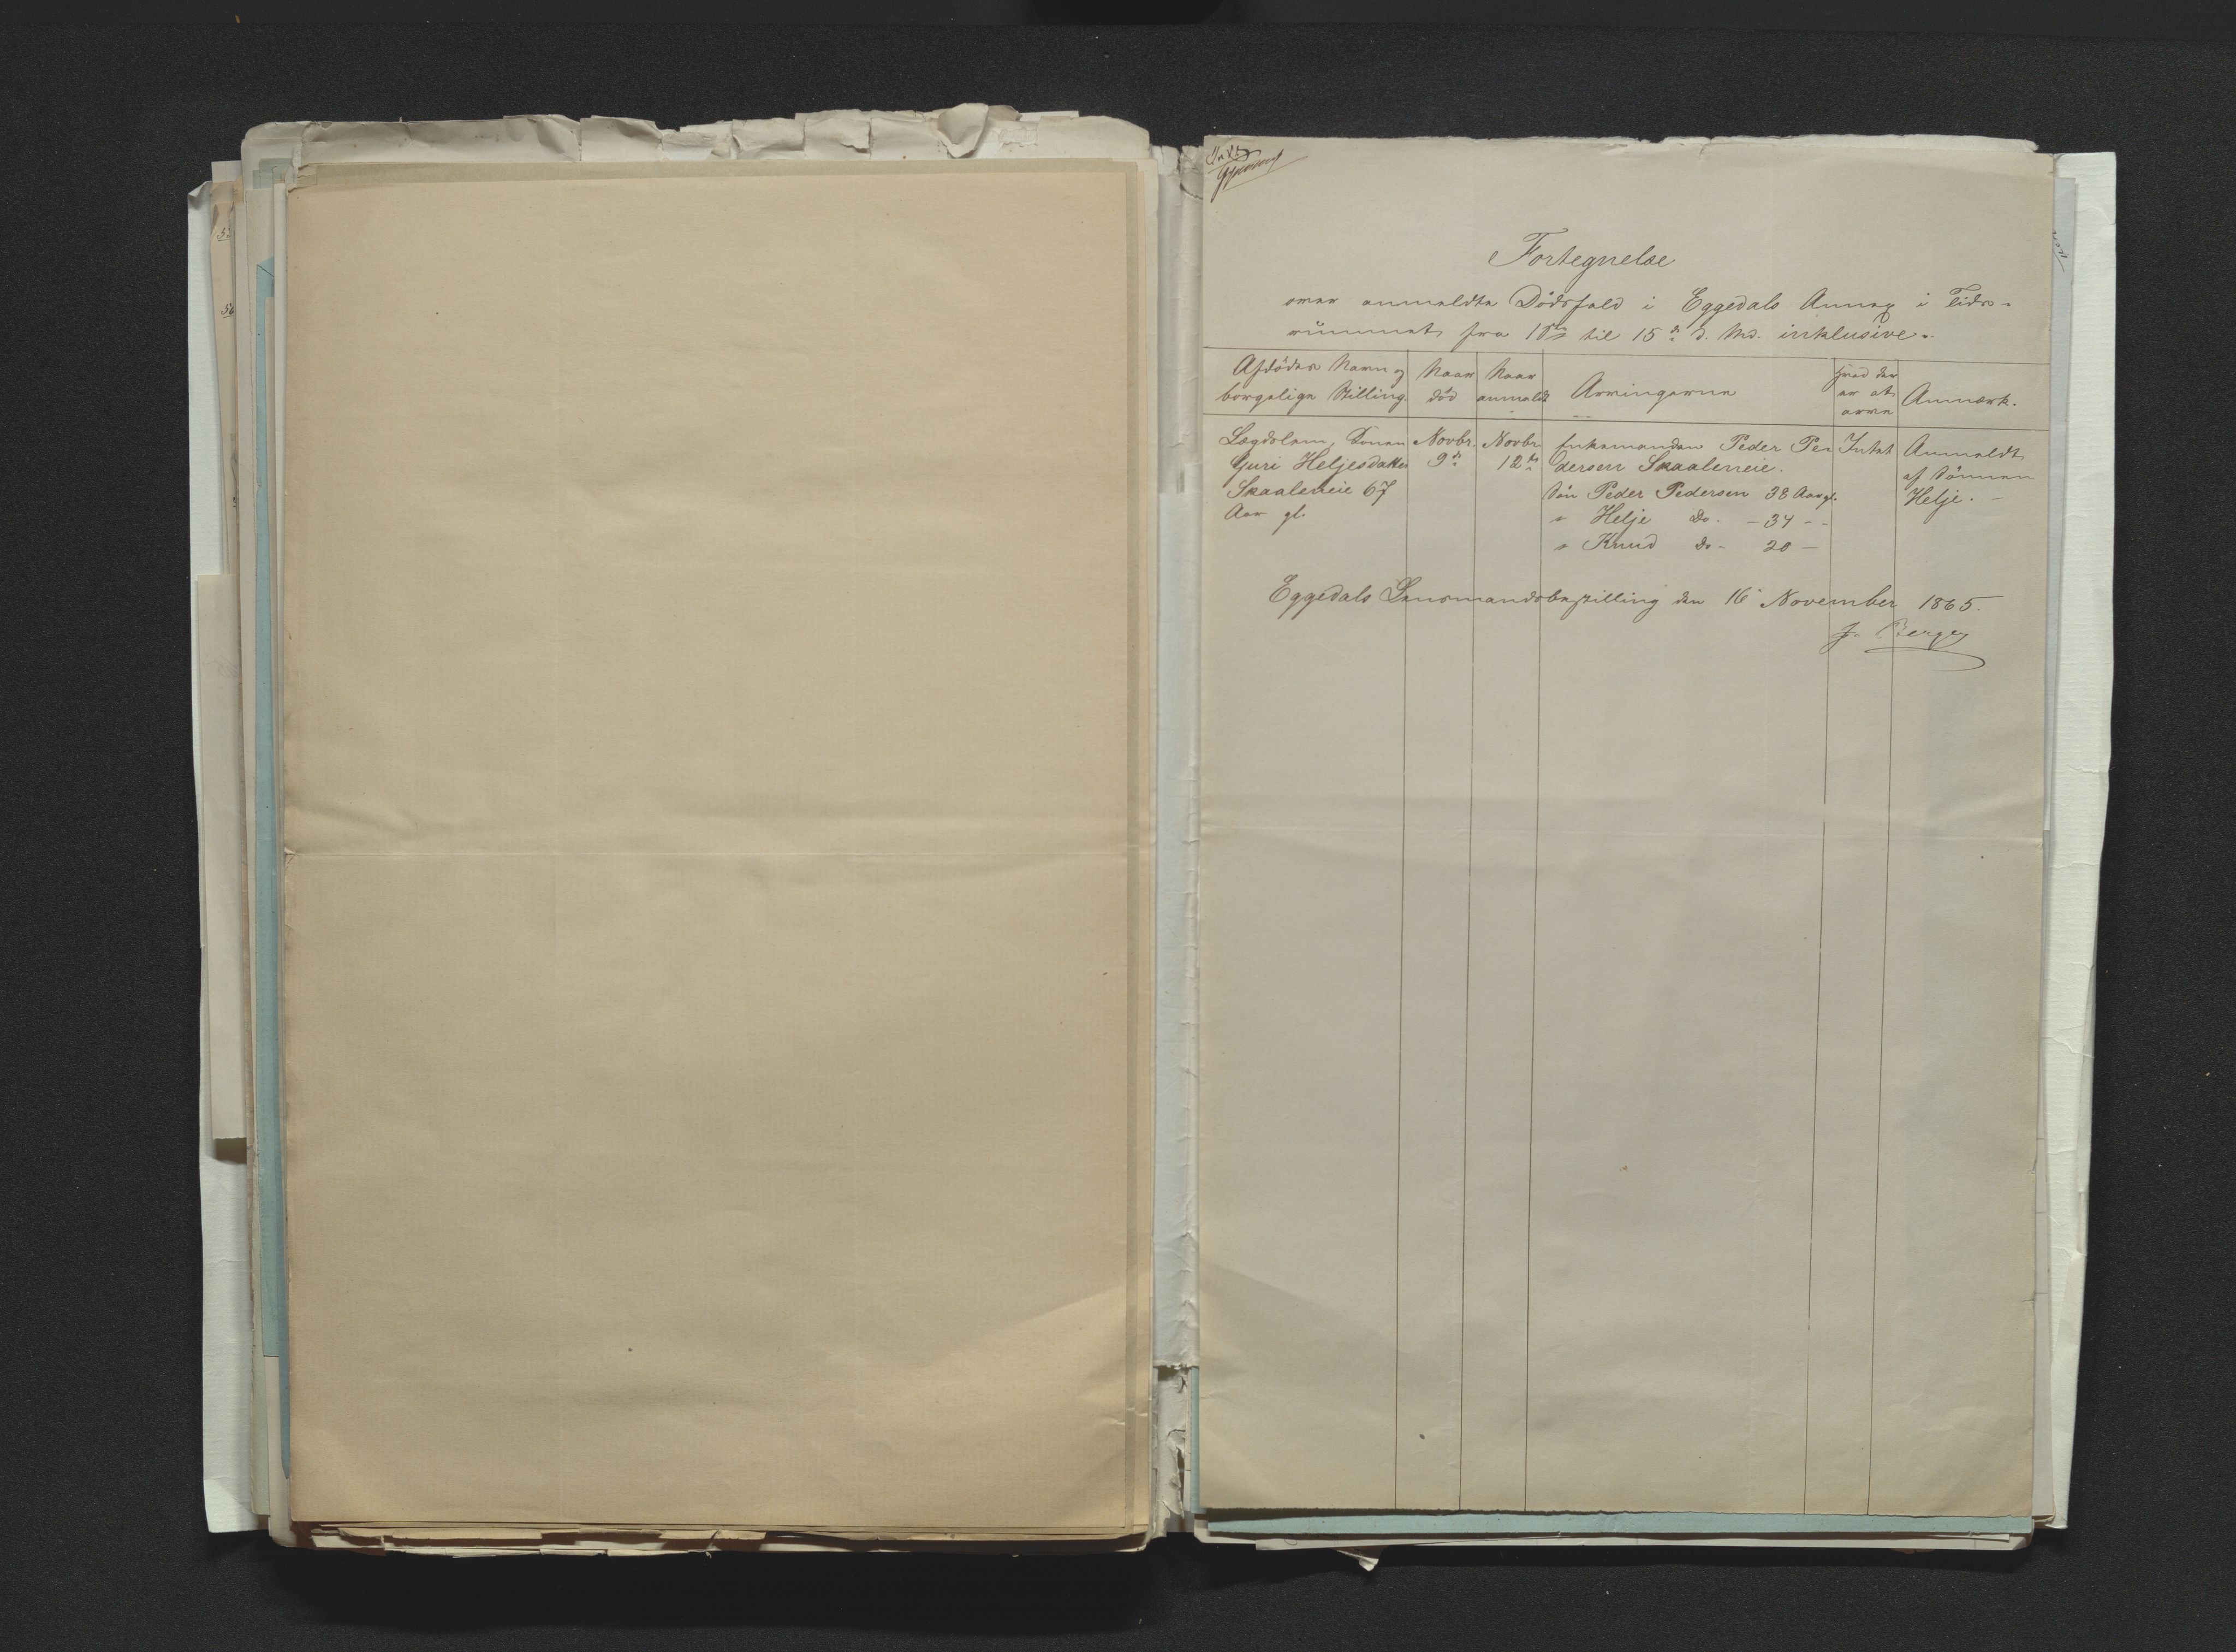 Fortegnelse
over anmeldte Dödsfald i Eggedals Annex i Tids-
rummet fra 1ste til 15de d. Md. inklusive.
Afdödes Navn og borgelige Stilling.
Naar död
Naar anmeldt
Arvingerne
Hvad der er at arve
Anmærk.
Lægdslem, Konen
Guri Heljesdatter
Skaaleneie 67
Aar gl.
Novbr.
9de
Novbr.
12te
Enkemanden Peder Pe
dersen Skaaleneie.
Sön Peder Pedersen 38 Aar gl.
" Helje Do. - 34 - -
" Knud Do - 20 -
Intet
Anmeldt
af Sönnen
Helje. -
Eggedals Lensmandsbestilling den 16 November 1865.
J. Berge